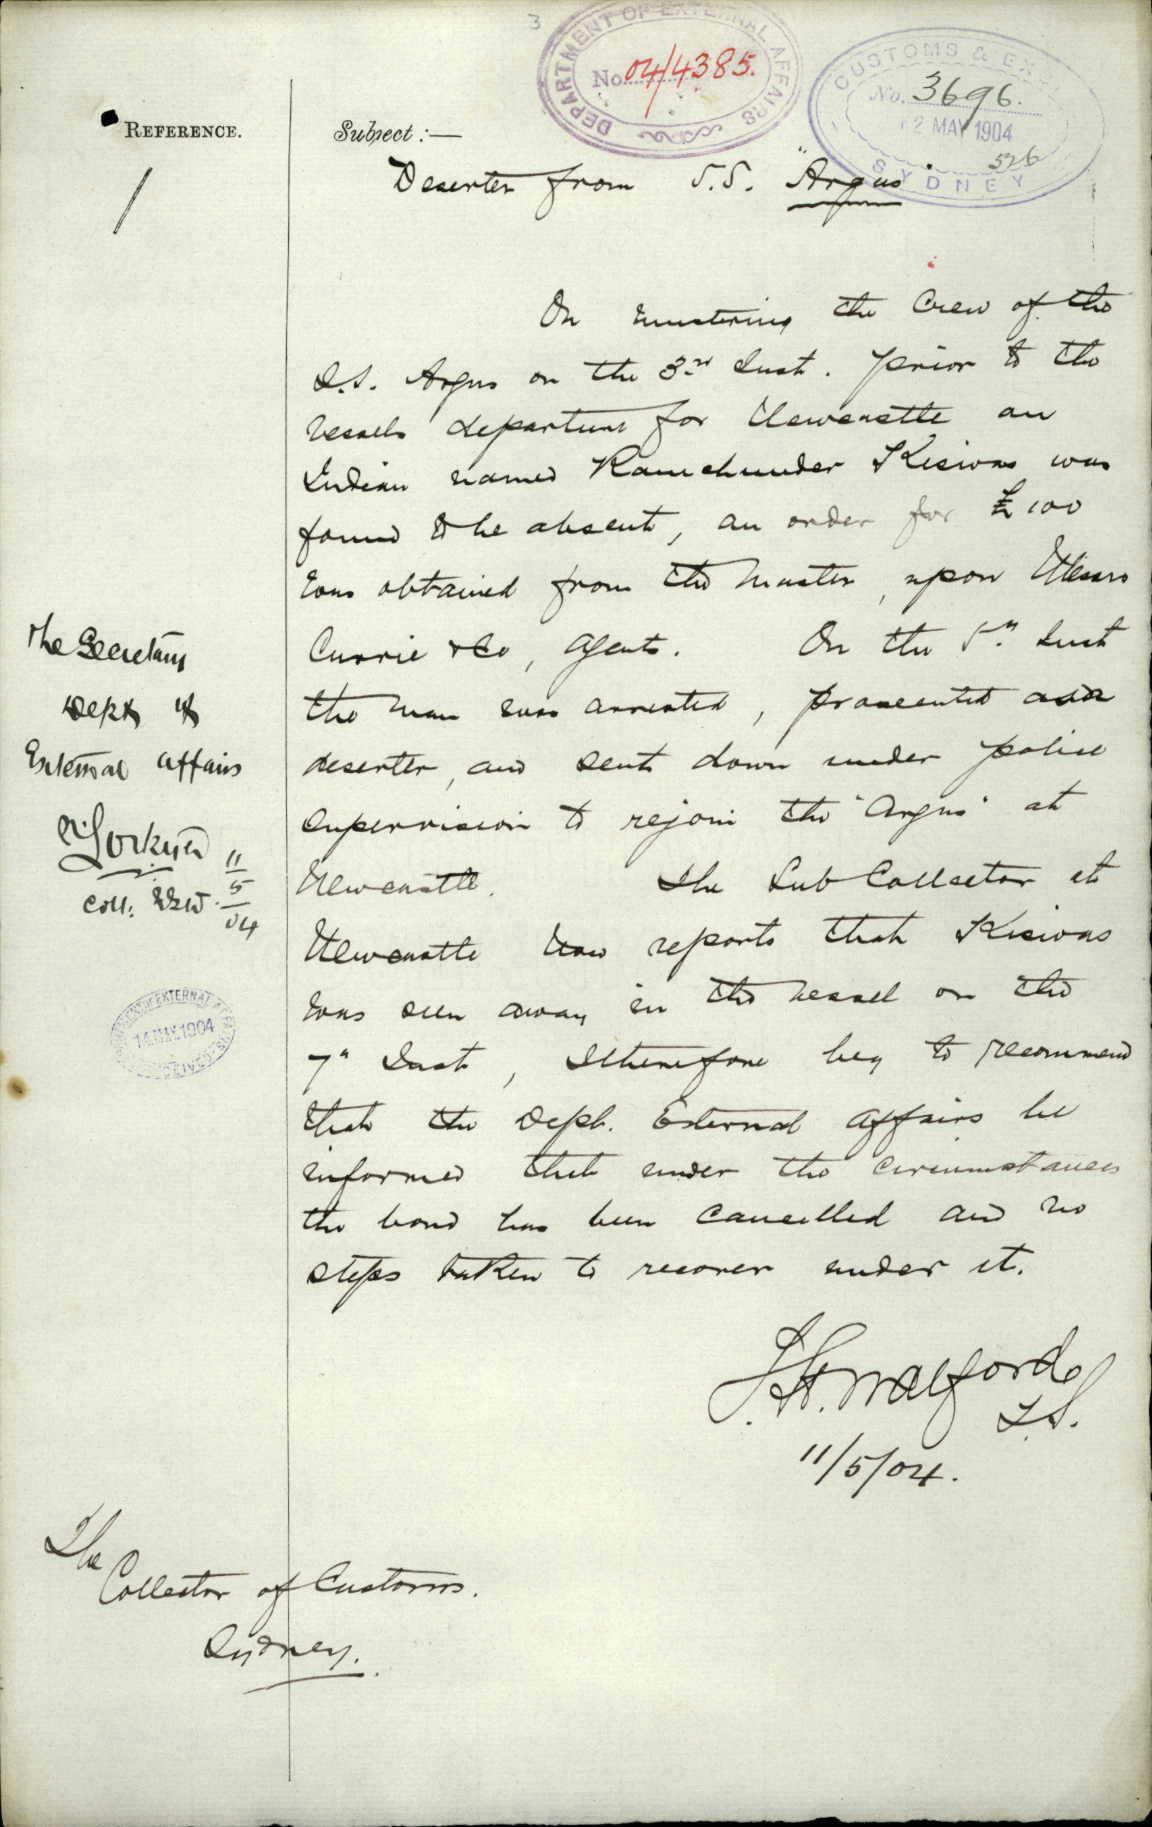 3
DEPARTMENT OF EXTERNAL AFFAIRS
No. 04/4385.
CUSTOMS & EX
No. 3696.
12 MAY 1904
526
SYDNEY
REFERENCE.
Subject :—
Deserter from S.S. "Argus"
On mustering the Crew of the
S.S. Argus on the 3rd Inst. prior to the
vessels departure for Newcastle an
Indian named Ramchunder Kisiwas was
found to be absent, an order for £100
was obtained from the Master, upon Messrs
Currie & Co, Agents. On the 5th Inst
the man was arrested, prosecuted as a
deserter, and sent down under police
supervision to rejoin the "Argus" at
Newcastle. The Sub Collector at
Newcastle now reports that Kisiwas
was seen away in the vessel on the
7th Inst, I therefore beg to recommend
that the Dept. External Affairs be
informed that under the circumstances
the bond has been cancelled and no
steps taken to recover under it.
J.H. Walford
I.S.
11/5/04.
The Secretary
Dept of
External Affairs
N Lockyer
Coll: NSW.
11/5/04
14 MAY 1904
The
Collector of Customs.
Sydney.